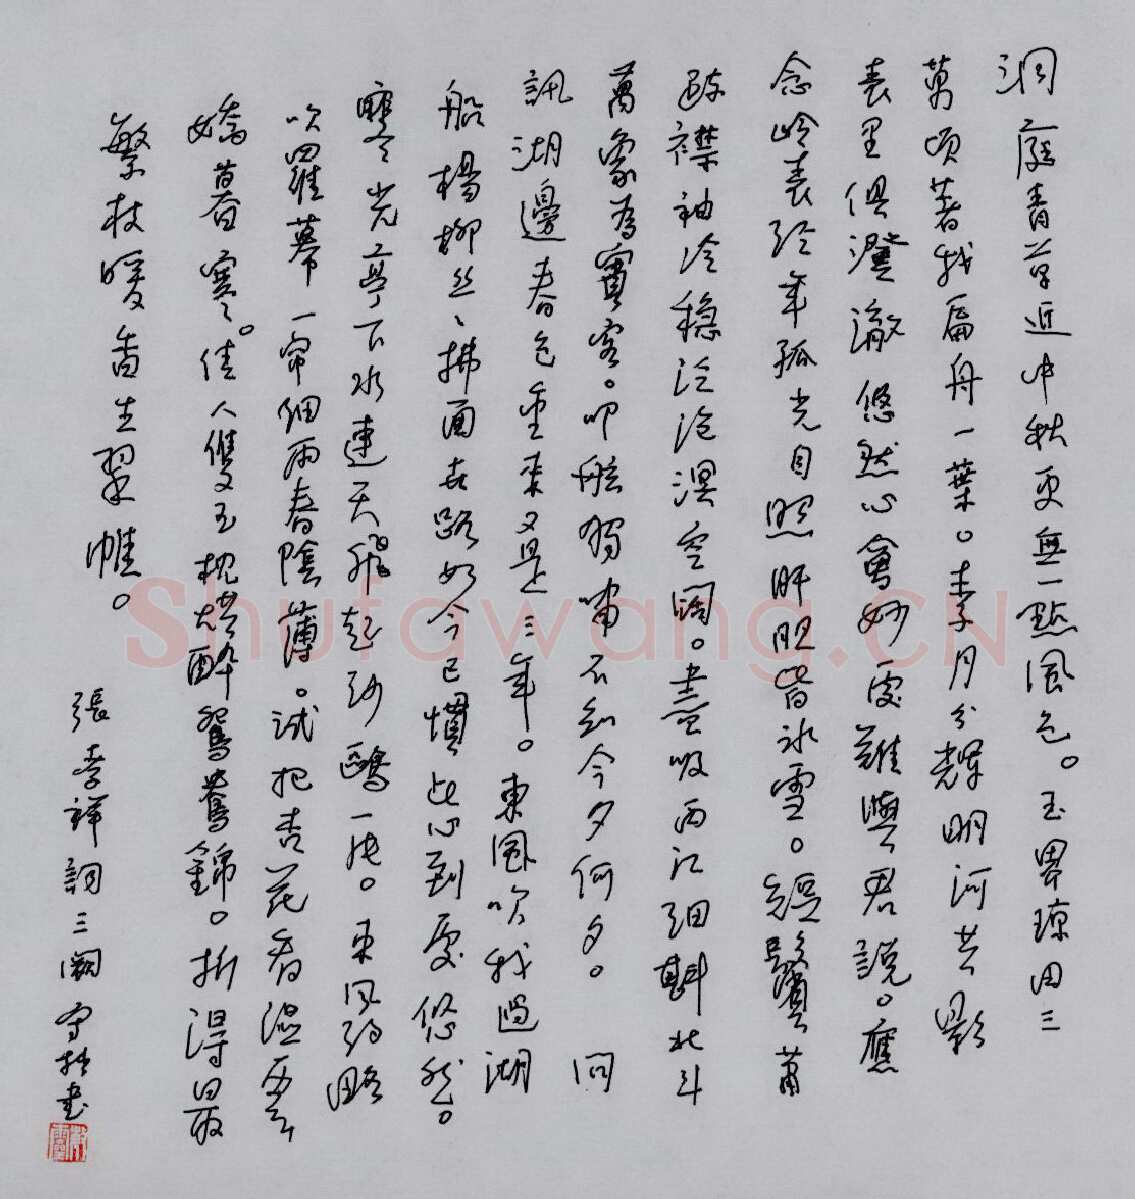 洞庭青草近中秋更無一點風色。玉界琼田三
萬頃著我扁舟一葉。素月分輝明河共影
表里俱澄澈悠然心會妙處難與君說。應
念岭表經年孤光自照肝胆皆冰雪。短鬢蕭
疏襟袖冷穩泛滄溟空闊。盡吸西江細斟北斗
萬象為賓客。叩舷獨嘯不知今夕何夕。 問
訊湖邊春色重來又是三年。東風吹我過湖
船楊柳絲、拂面世路如今已慣此心到處悠然。
寒光亭下水連天飛起沙鷗一片。東風約略
吹羅幕一帘細雨春陰薄。試把杏花看溼雲
嬌暮寒。佳人雙玉枕烘醉鴛鴦錦。折得最
繁枝暖香生翠帷。
張孝祥詞三闋守拙書
Shufawang.CN